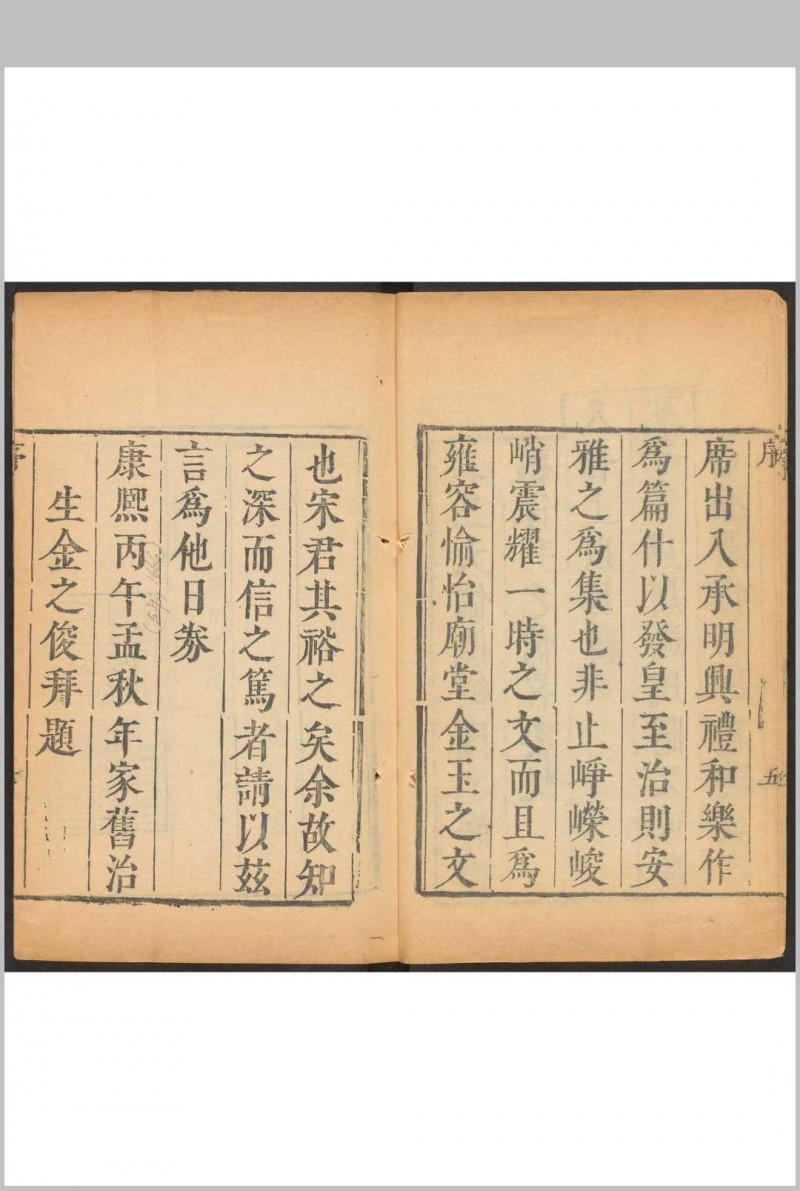 序
五
席出入承明興禮和樂作
爲篇什以發皇至治則安
雅之爲集也非止崢嶸峻
峭震耀一時之文而且爲
雍容愉怡廟堂金玉之文
也宋君其裕之矣余故知
之深而信之篤者請以玆
言爲他日券
康熙丙午孟秋年家舊治
生金之俊拜題